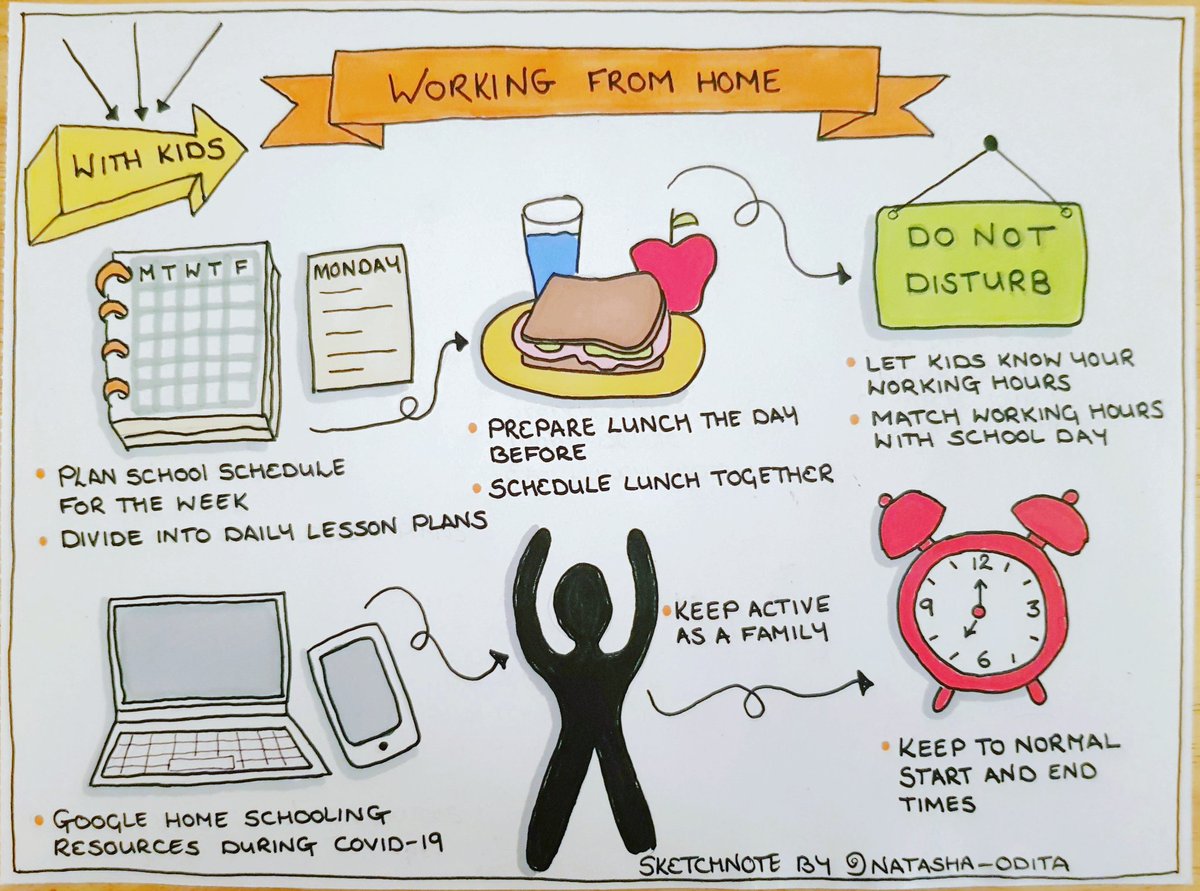 WORKING FROM HOME
WITH KIDS
M T W T F
MONDAY
• PLAN SCHOOL SCHEDULE
FOR THE WEEK
• DIVIDE INTO DAILY LESSON PLANS
• PREPARE LUNCH THE DAY
BEFORE
• SCHEDULE LUNCH TOGETHER
DO NOT
DISTURB
• LET KIDS KNOW YOUR
WORKING HOURS
• MATCH WORKING HOURS
WITH SCHOOL DAY
• GOOGLE HOME SCHOOLING
RESOURCES DURING COVID-19
• KEEP ACTIVE
AS A FAMILY
12
9 3
6
• KEEP TO NORMAL
START AND END
TIMES
SKETCHNOTE BY @NATASHA-ODITA